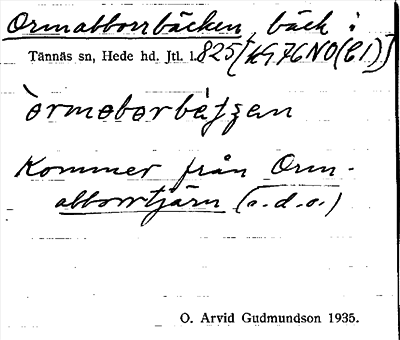 Ormabborrbäcken, bäck i
Tännäs sn, Hede hd. Jtl. l. 825 [KG 76 NO (C 1)]
òrmɑbɔrbɛ́ʃʒan
Kommer från Orm-
abborrtjärn (s.d.o.)
O. Arvid Gudmundson 1935.